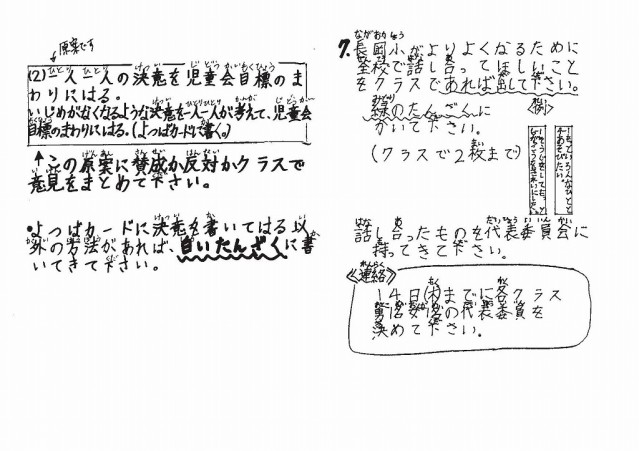 原案です
(2)一人一人の決意を児童会目標のま
わりにはる。
いじめがなくなるような決意を一人一人が考えて、児童会
目標のまわりにはる。(よつばカードに書く。)
↑この原案に賛成か反対かクラスで
意見をまとめて下さい。
・よつばカードに決意を書いてはる以
外の方法があれば、白いたんざくに書
いてきて下さい。
7.長岡小がよりよくなるために
全校で話し合ってほしいこと
をクラスであれば出して下さい。
緑のたんざくに
かいて下さい。
(クラスで2枚まで)
<例>
話し合ったものを代表委員会に
持ってきて下さい。
《連絡》
14日(木)までに各クラス
男1名女1名の代表委員を
決めて下さい。